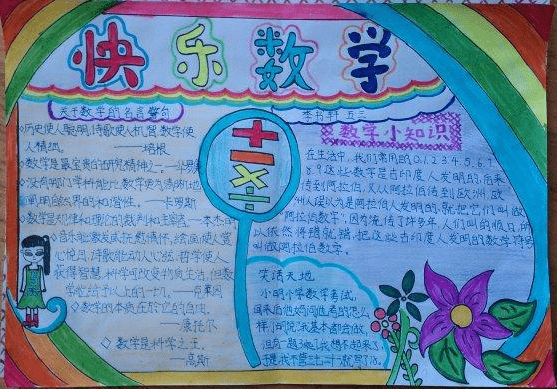 快乐数学
关于数学的名言警句
李书轩 五三
◇历史使人聪明,诗歌使人机智,数学使
人精细。 ——培根
◇数学是最宝贵的研究精神之一。—华罗庚
◇没有哪门学科能比数学更为清晰地
阐明自然界的和谐性。 ——卡罗斯
◇数学是规律和理论的裁判和主宰者。—本杰明
◇音乐能激发或抚慰情怀,绘画使人赏
心悦目,诗歌能动人心弦,哲学使人
获得智慧,科学可改变物质生活,但数
学能给予以上的一切。——克莱因
◇数学的本质在于它的自由。
——康托尔
◇数学是科学之王。
——高斯
+ − × ÷
数学小知识
在生活中,我们常用的0.1.2.3.4.5.6.7
.8.9这些数字是古印度人发明的,后来
传到阿拉伯,又从阿拉伯传到欧洲,欧
洲人误以为是阿拉伯人发明的,就把它们叫做
“阿拉伯数字”,因为流传了许多年,人们叫的顺口,所
以依然将错就错,把这些古印度人发明的数字符号
叫做阿拉伯数字。
笑话天地
小明小学数学考试,
回来后他妈问他考的怎么
样,他说:“我基本都会做,
但有一题3乘7我想不起来了,
于是我不管三七二十一就写了18。